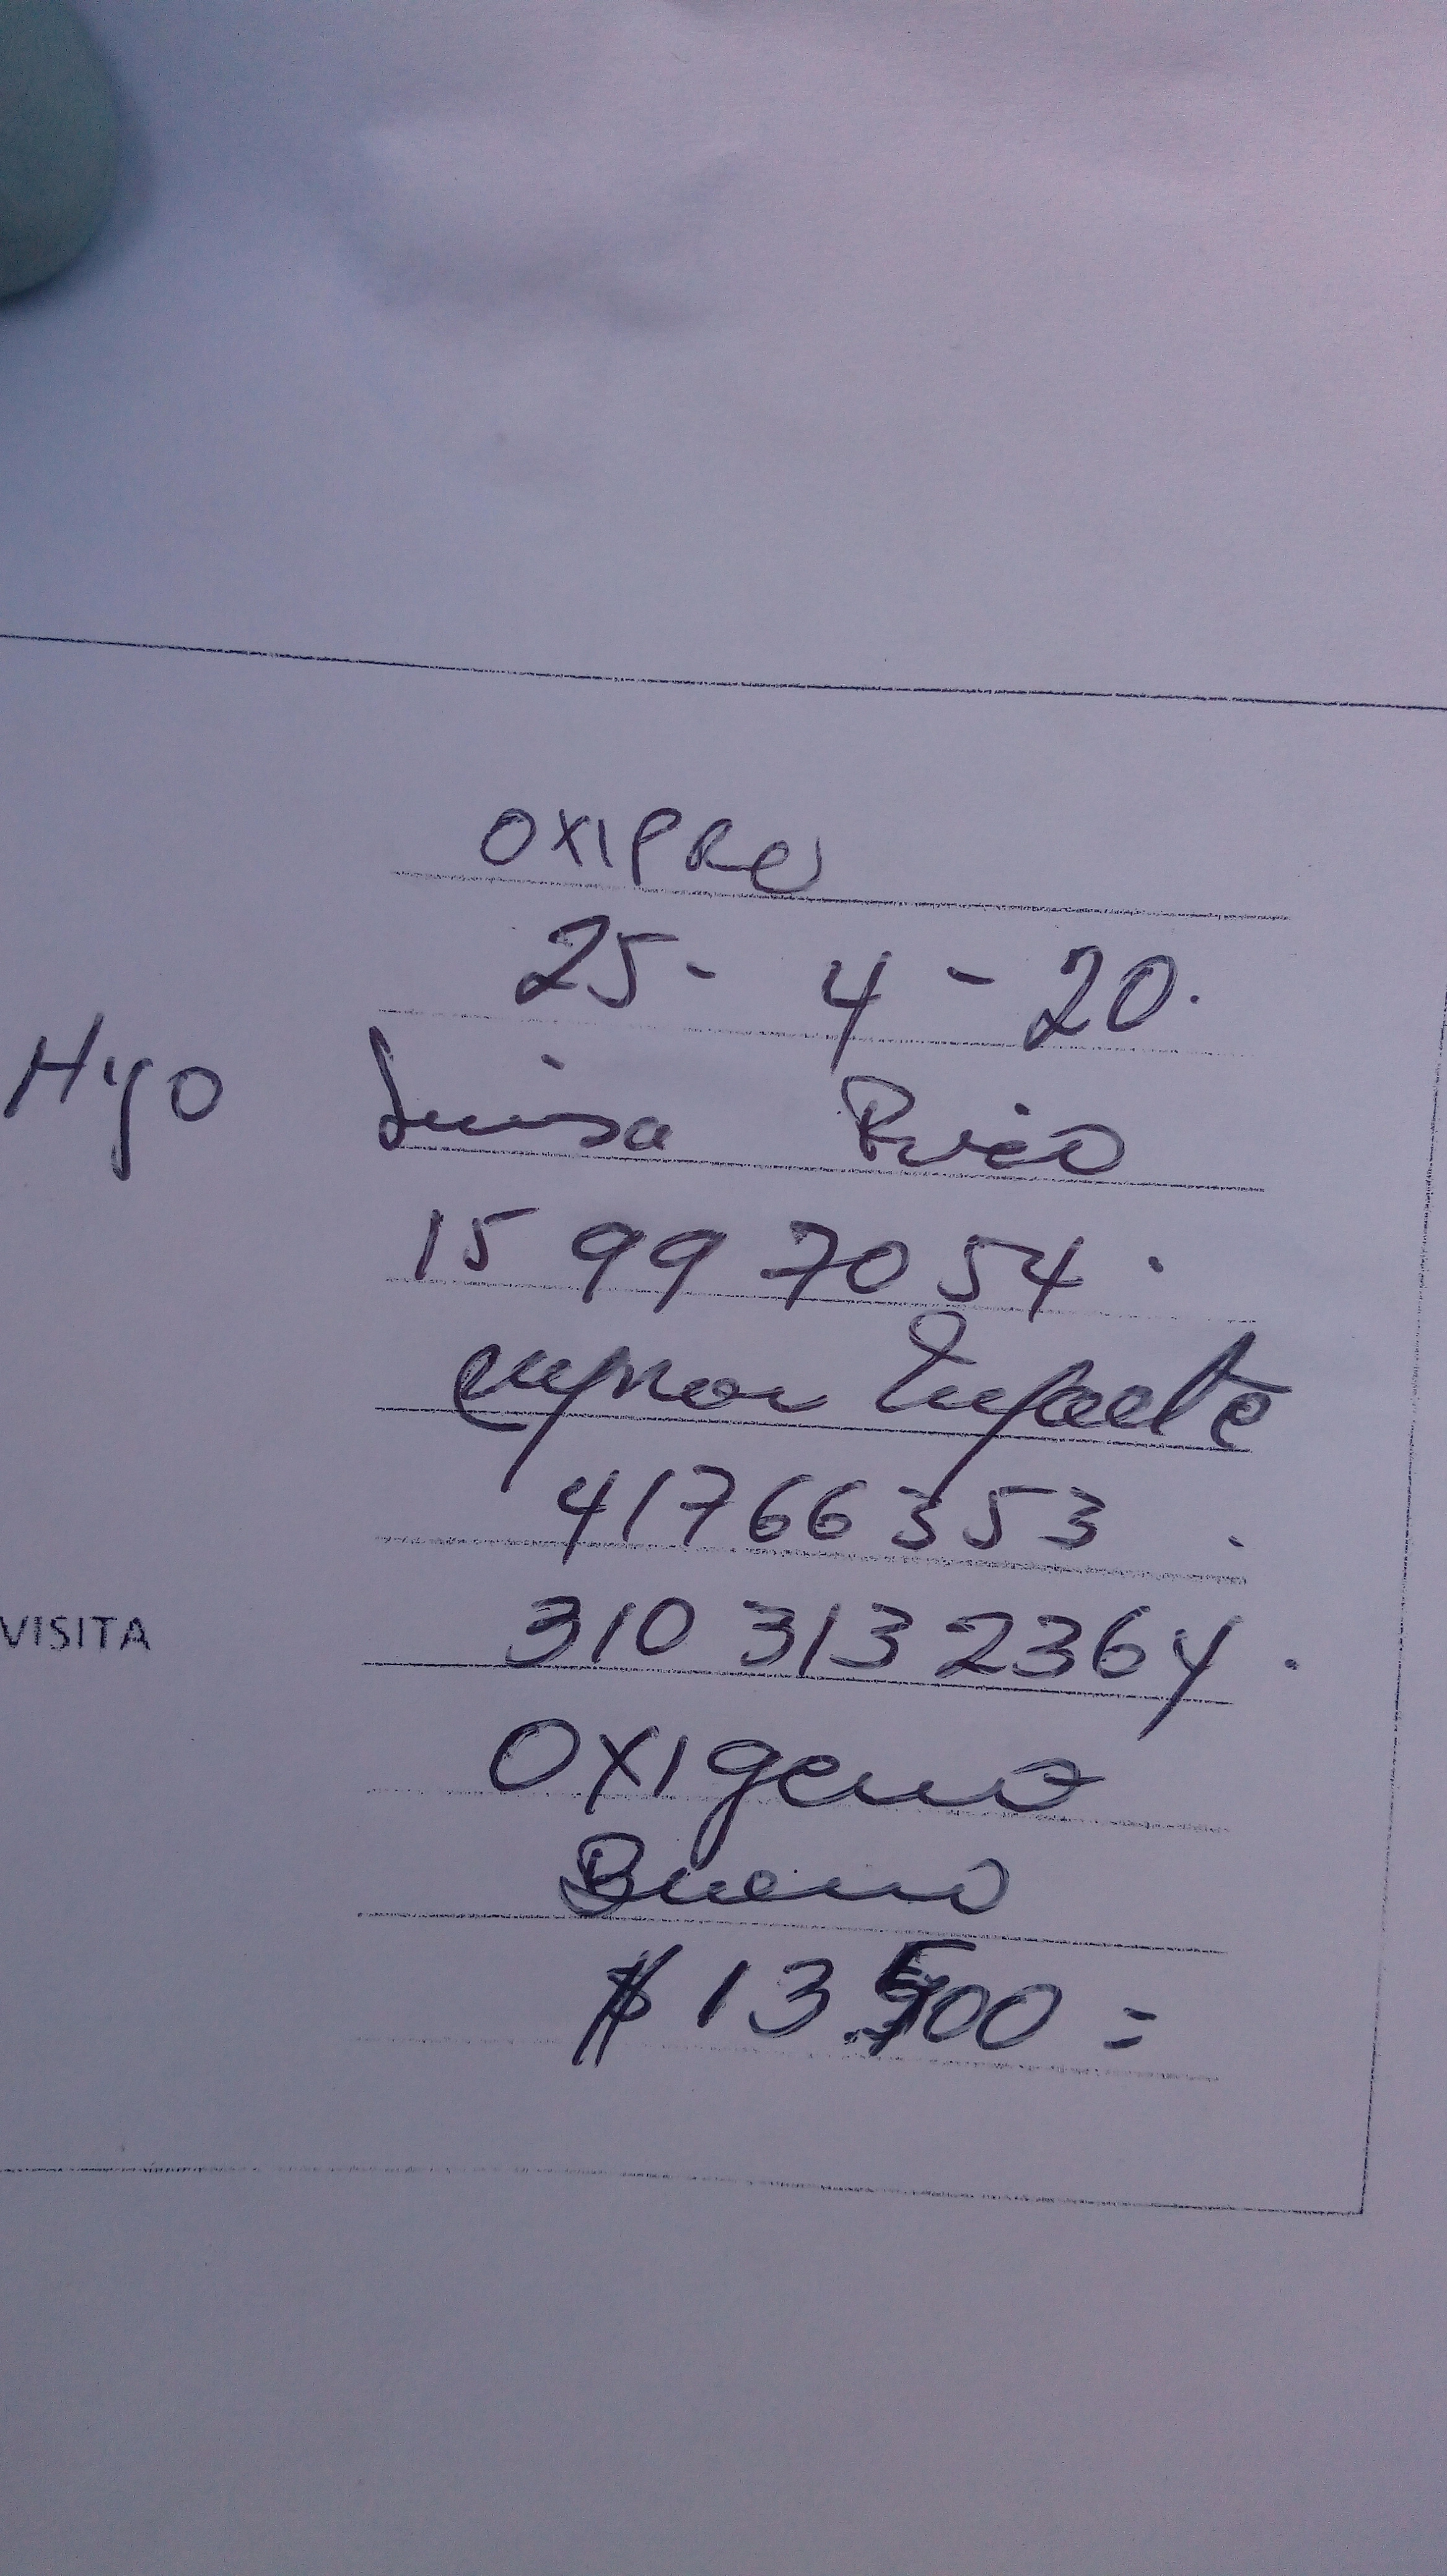 OXIPRO
25 - 4 - 20.
Hyo Luisa Rico
15 99 70 54 .
41766353 .
VISITA 310 313 2364 .
OXIgeno
Bueno
$ 13.500 =